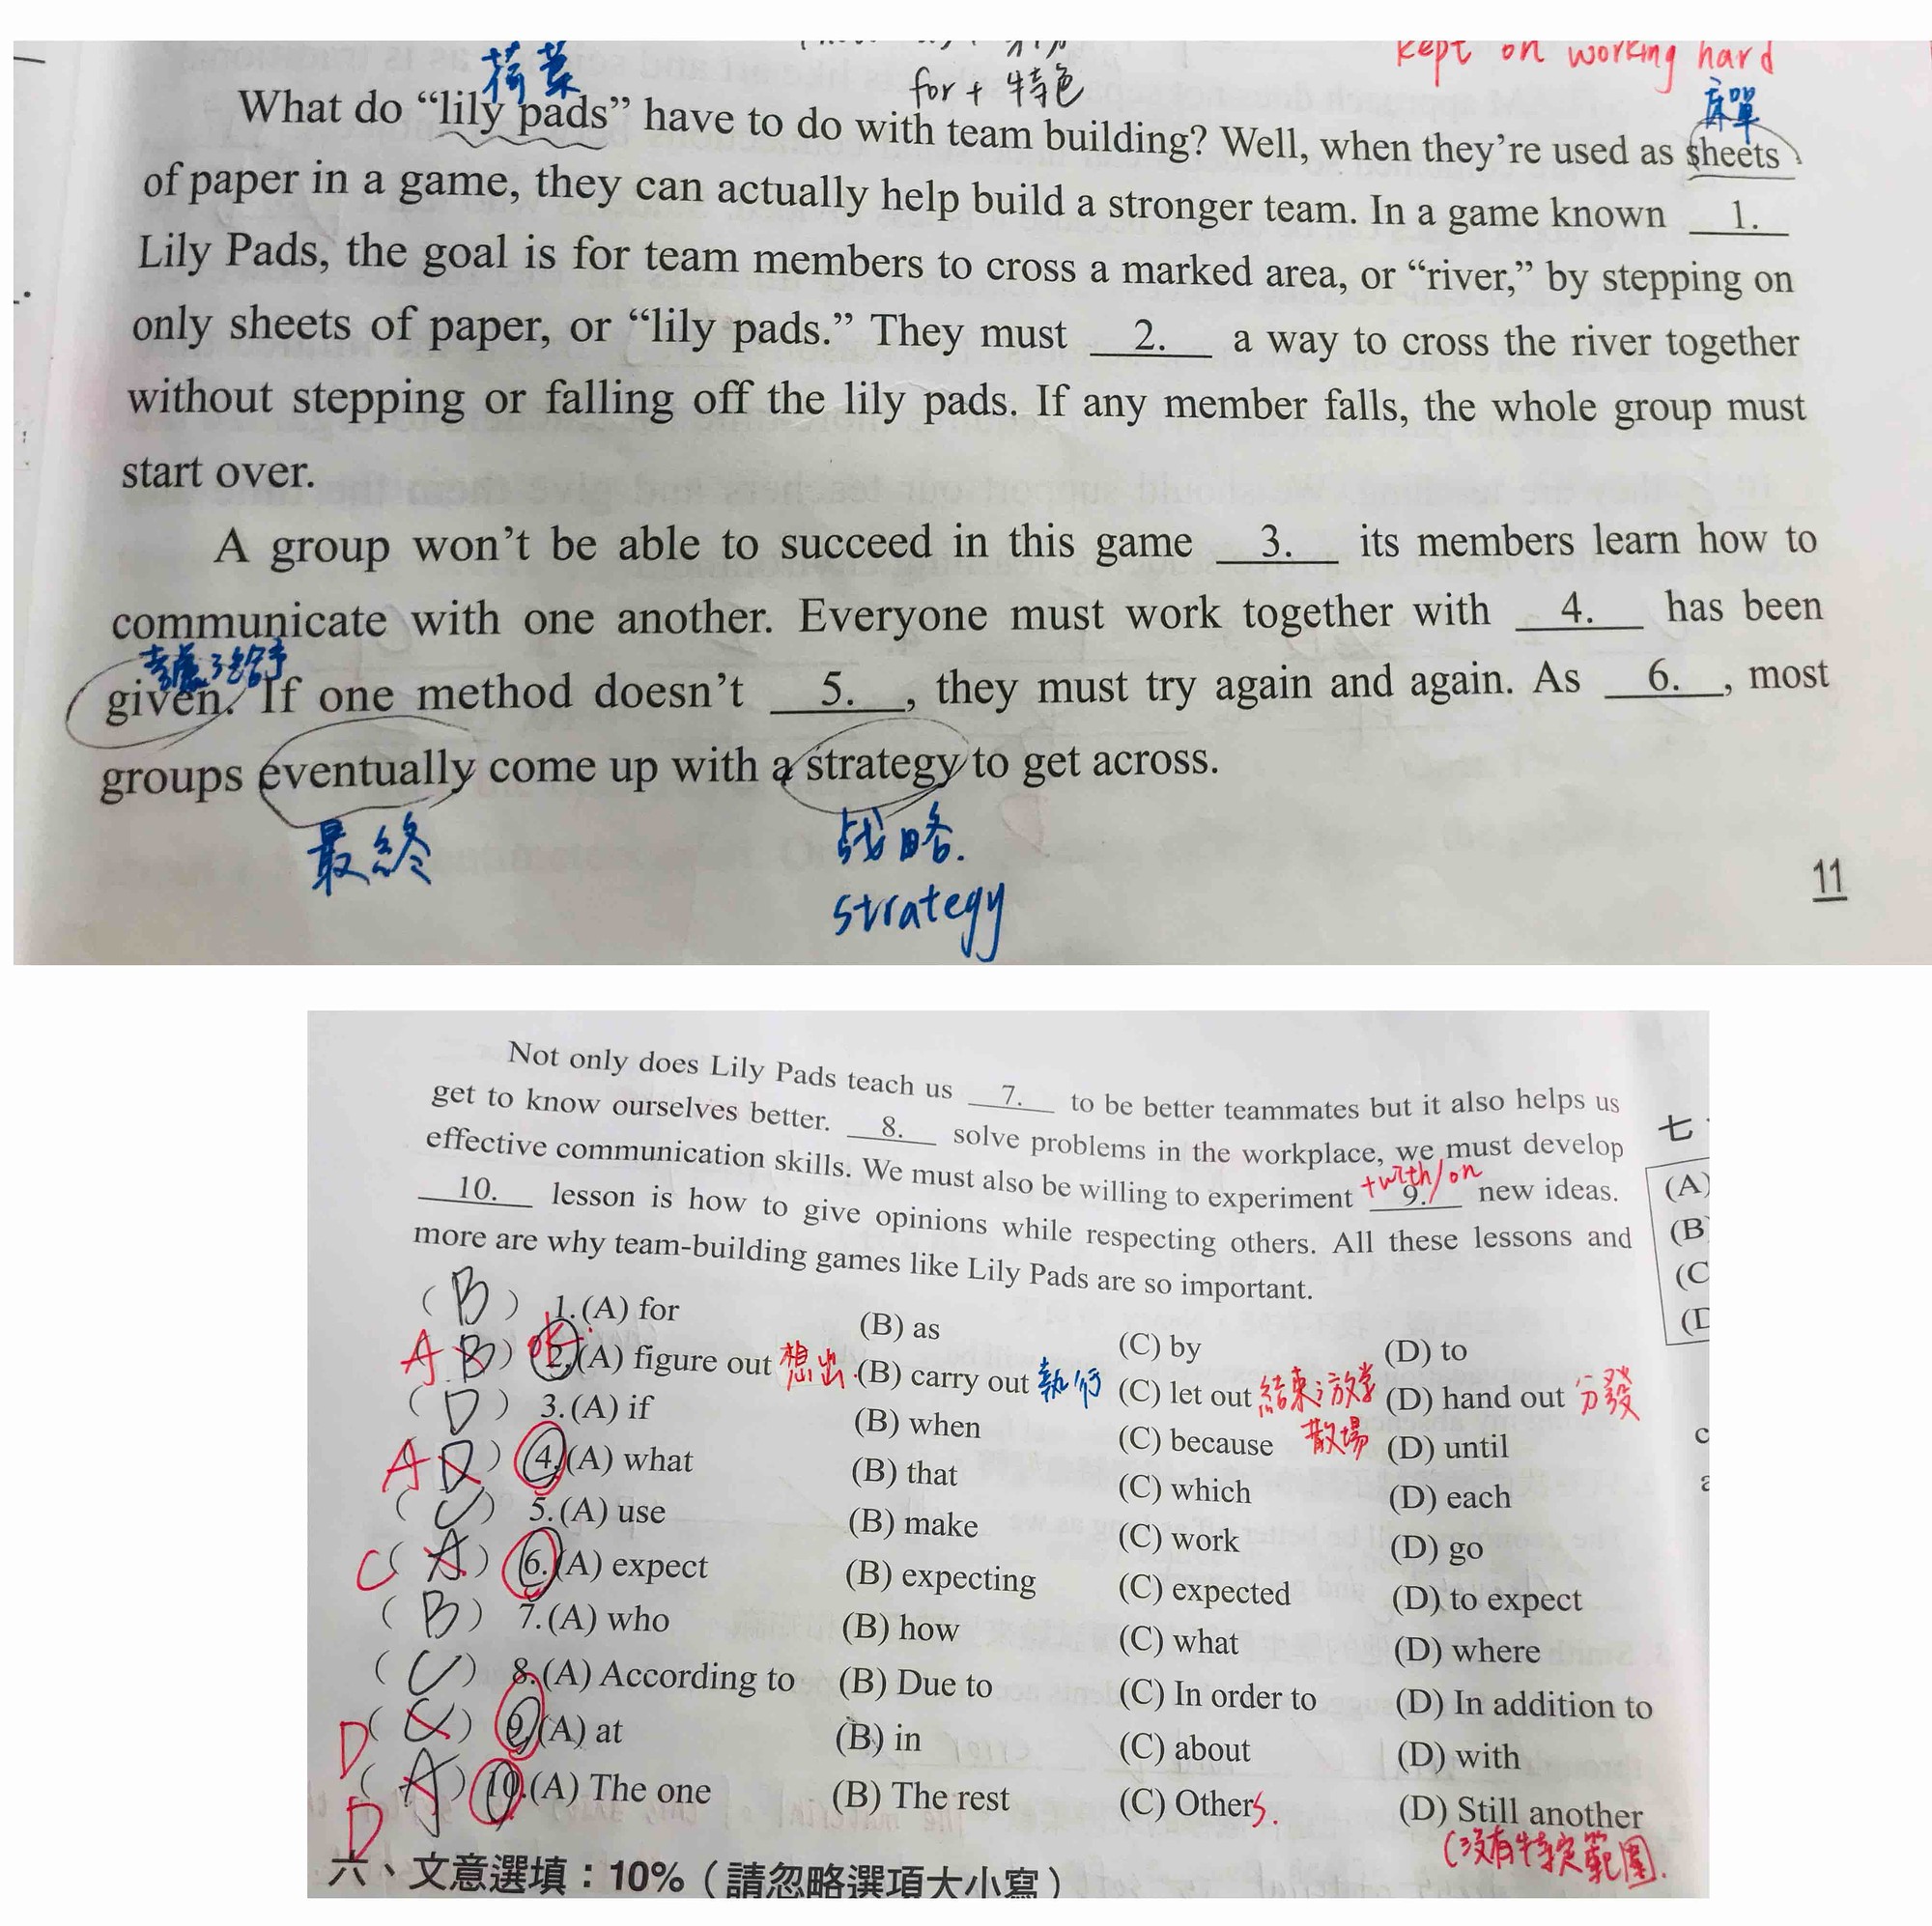 kept on working hard
荷葉
for + 特色
床單
What do “lily pads” have to do with team building? Well, when they’re used as sheets
of paper in a game, they can actually help build a stronger team. In a game known 1.
Lily Pads, the goal is for team members to cross a marked area, or “river,” by stepping on
only sheets of paper, or “lily pads.” They must 2. a way to cross the river together
without stepping or falling off the lily pads. If any member falls, the whole group must
start over.
A group won’t be able to succeed in this game 3. its members learn how to
communicate with one another. Everyone must work together with 4. has been
given. If one method doesn’t 5. , they must try again and again. As 6. , most
groups eventually come up with a strategy to get across.
最終
战略.
strategy
11
Not only does Lily Pads teach us 7. to be better teammates but it also helps us
get to know ourselves better. 8. solve problems in the workplace, we must develop
effective communication skills. We must also be willing to experiment 9. new ideas.
+with/on
10. lesson is how to give opinions while respecting others. All these lessons and
more are why team-building games like Lily Pads are so important.
七
(A)
(B)
(C
(D
( B ) 1.(A) for (B) as (C) by (D) to
A B ) 2.(A) figure out 想出. (B) carry out 執行 (C) let out 結束;放學 (D) hand out 分發
散場
( D ) 3.(A) if (B) when (C) because (D) until
A D ) 4.(A) what (B) that (C) which (D) each
( C ) 5.(A) use (B) make (C) work (D) go
C ( A ) 6.(A) expect (B) expecting (C) expected (D) to expect
( B ) 7.(A) who (B) how (C) what (D) where
( C ) 8.(A) According to (B) Due to (C) In order to (D) In addition to
D ( C ) 9.(A) at (B) in (C) about (D) with
D ( A ) 10.(A) The one (B) The rest (C) Others. (D) Still another
(沒有特定範圍.
六、文意選填：10%（請忽略選項大小寫）